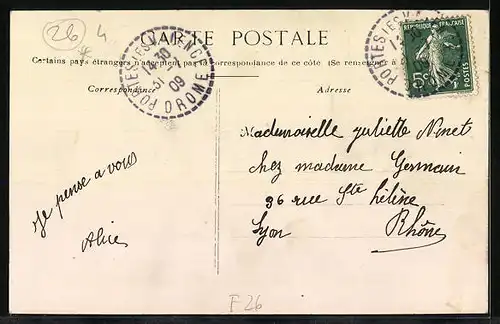 26 4
CARTE POSTALE
Certains pays étrangers n'acceptent pas la correspondance de ce côté (Se renseigner à la
Correspondance
Adresse
POSTES
14-30
31 - 1
09
DROME
REPUBLIQUE FRANÇAISE
5c
POSTES
Je pense a vous
Alice
Mademoiselle Juliette Ninet
chez madame Germain
36 rue Ste hélène
Lyon Rhône
F26